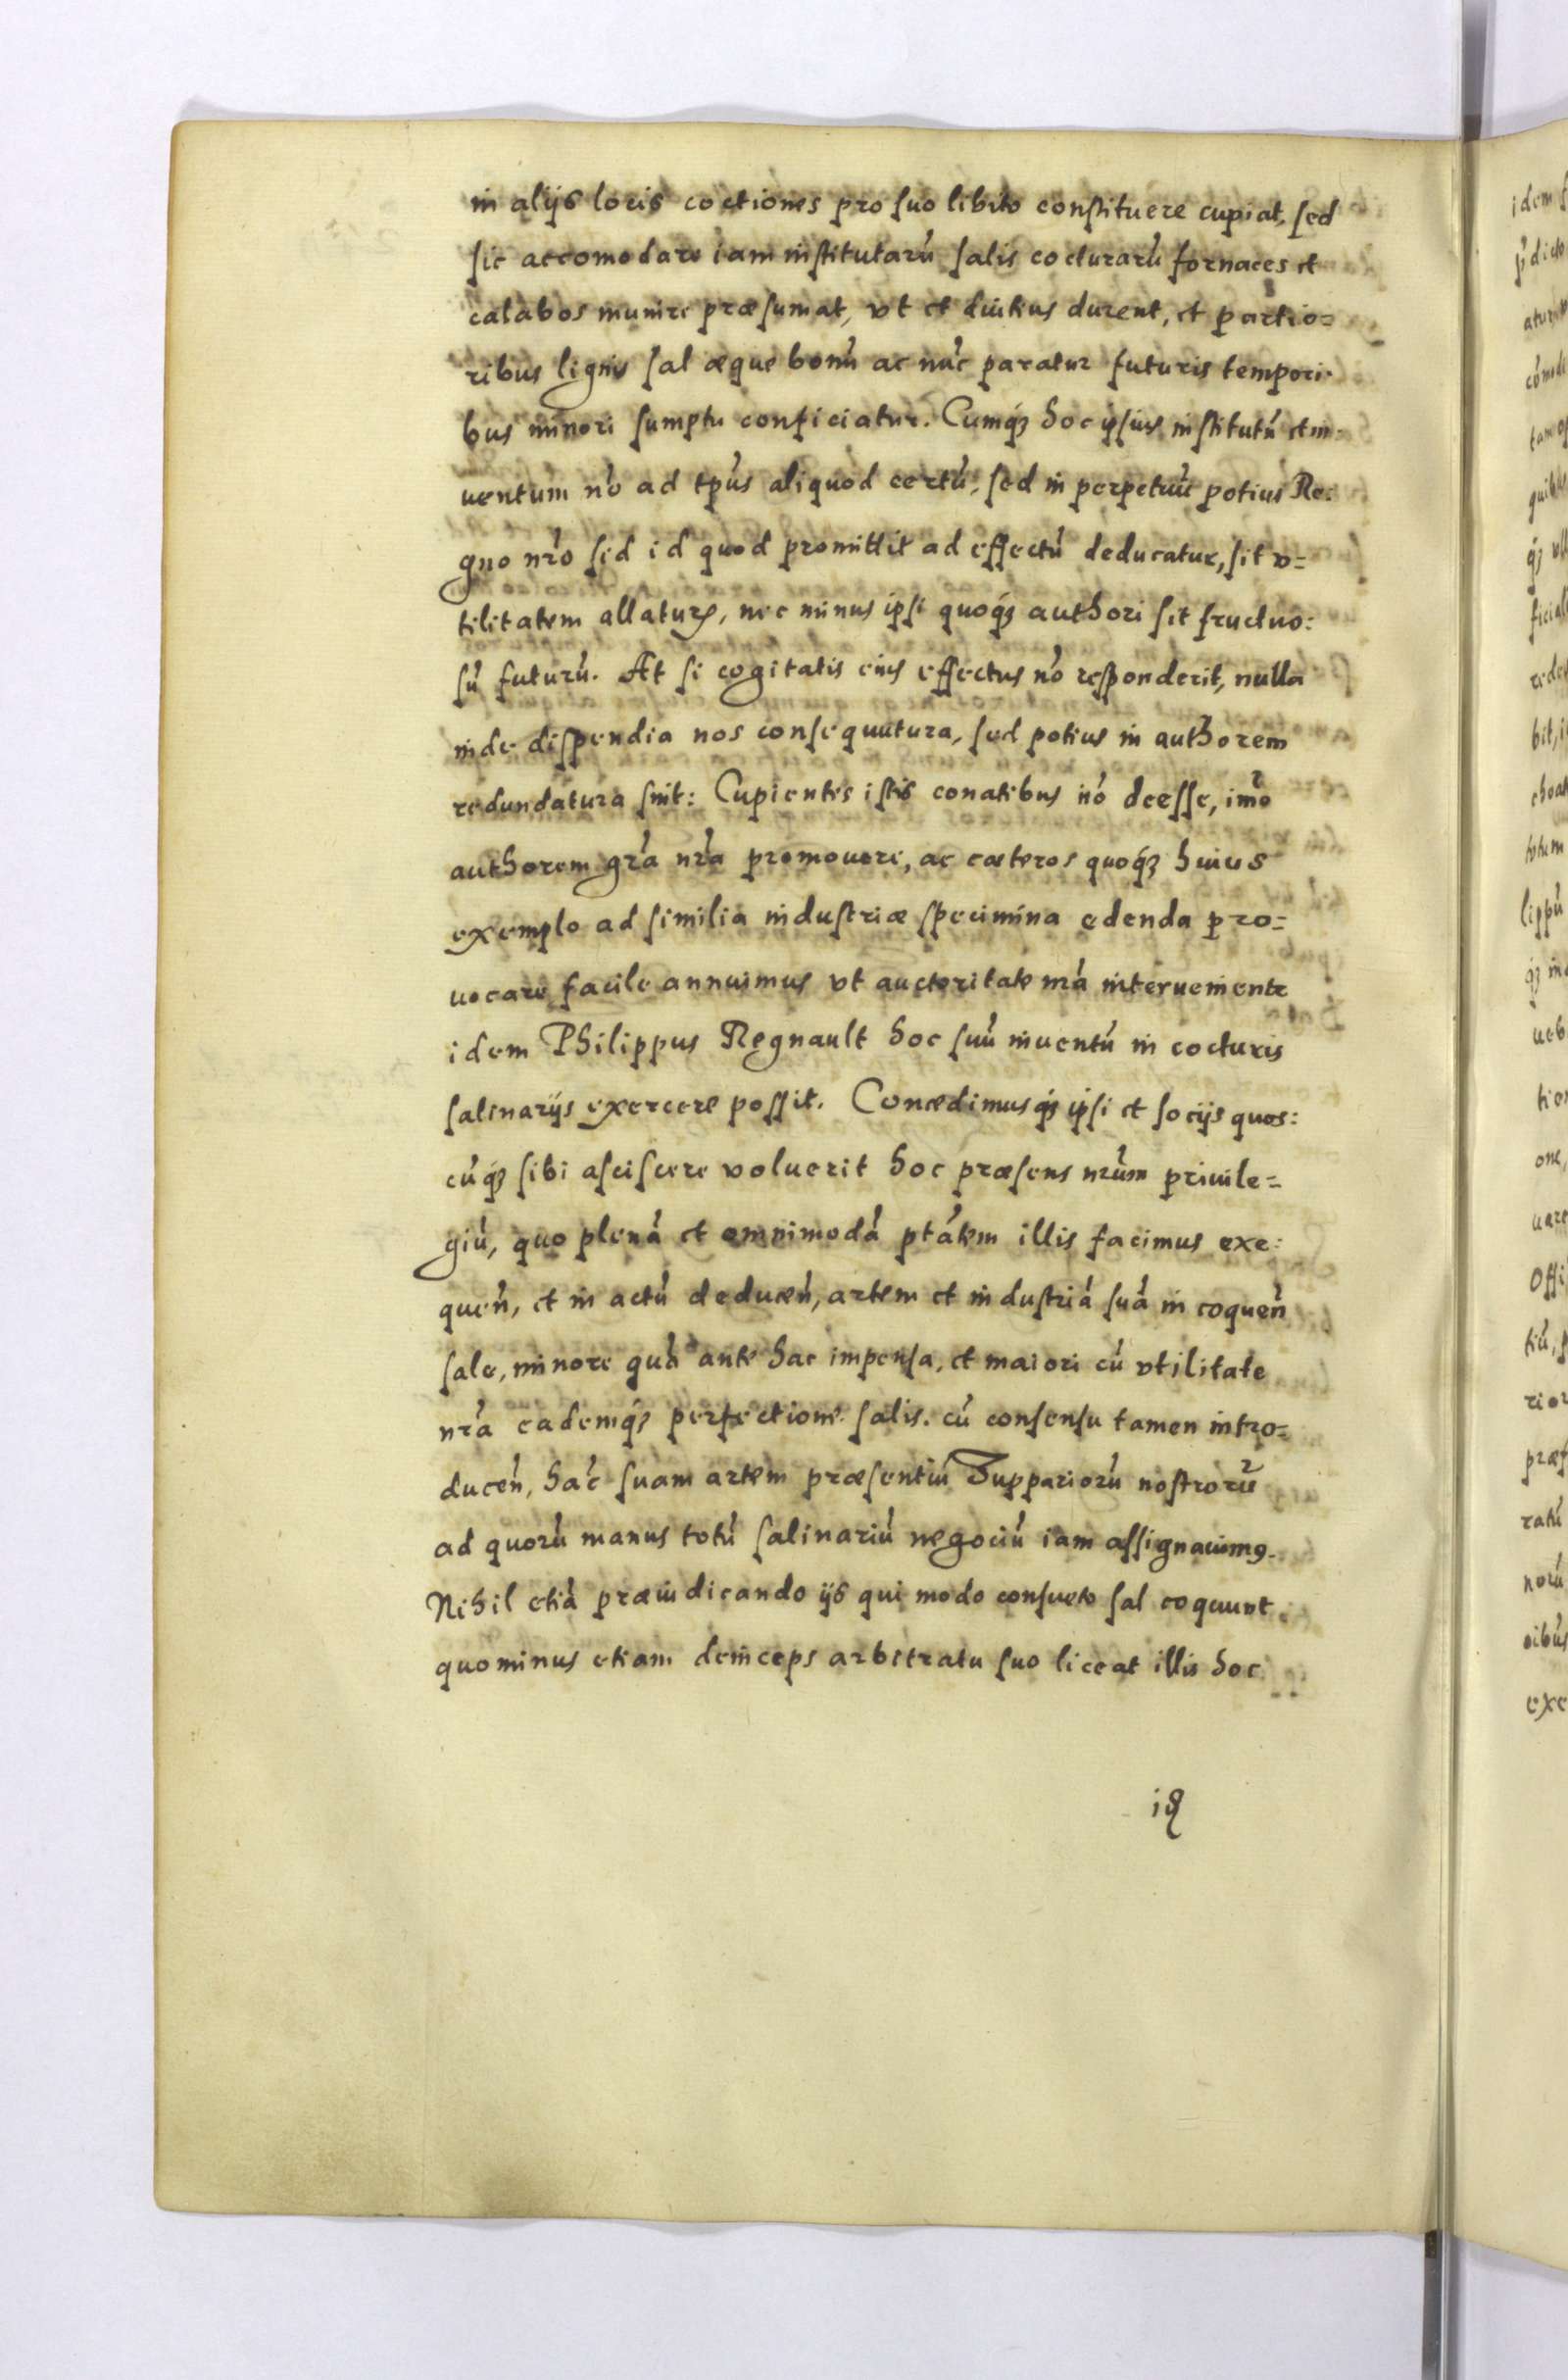 in alijs locis coctiones pro suo libito constituere cupiat, sed
sic accomodare iam institutarũ salis cocturarũ fornaces et
calabos munire præsumat, vt et diutius durent, et partio=
ribus lignis sal æque bonũ ac nũc paratur futuris tempori-
bus minori sumptu conficiatur. Cumq₃ hoc ipsius institutũ et in-
uentum nõ ad tpũs aliquod certũ, sed in perpetuũ potius Re:
gno nr̃o sed id quod promittit ad effectũ deducatur, sit v=
tilitatem allaturꝝ, nec minus ipsi quoq₃ authori sit fructuo:
sũ futurũ. At si cogitatis eius effectus nõ responderit, nulla
inde dispendia nos consequutura, sed potius in authorem
redundatura sint: Cupientes istis conatibus nõ deesse, imõ
authorem gr̃a nr̃a promouere, ac cæteros quoq₃ huius
exemplo ad similia industriæ specimina edenda pro=
uocare facile annuimus vt auctoritate nr̃a interueniente
idem Philippus Regnault hoc suũ inuentũ in cocturis
salinarijs exercere possit. Concedimusq₃ ipsi et socijs quos:
cũq₃ sibi asciscere voluerit hoc præsens nr̃um priuile=
giũ, quo plenã et omnimodã ptãtem illis facimus exe:
queñ, et in actũ deduceñ, artem et industriã suã in coqueñ
sale, minore quã ante hac impensa, et maiori cũ vtilitate
nr̃a eademq₃ perfectione salis. cũ consensu tamen intro=
duceñ, hãc suam artem præsentiũ Suppariorũ nostrorũ
ad quorũ manus totũ salinariũ negociũ iam assignauimꝰ.
Nihil etiã præiudicando ijs qui modo consueto sal coquunt.
quominus etiam deinceps arbitratu suo liceat illis hoc